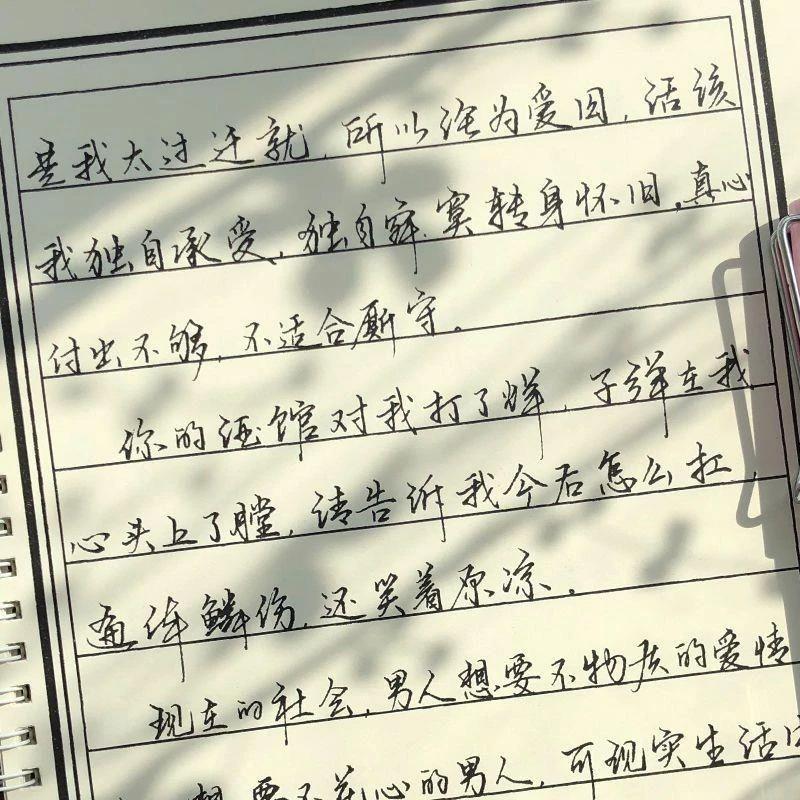 是我太过迁就,所以沦为爱囚,活该
我独自承受,独自寂寞转身怀旧,真心
付出不够,不适合厮守。
你的酒馆对我打了烊,子弹在我
心头上了膛,请告诉我今后怎么扛,
遍体鳞伤,还笑着原凉。
现在的社会,男人想要不物质的爱情
想要不花心的男人,可现实生活中